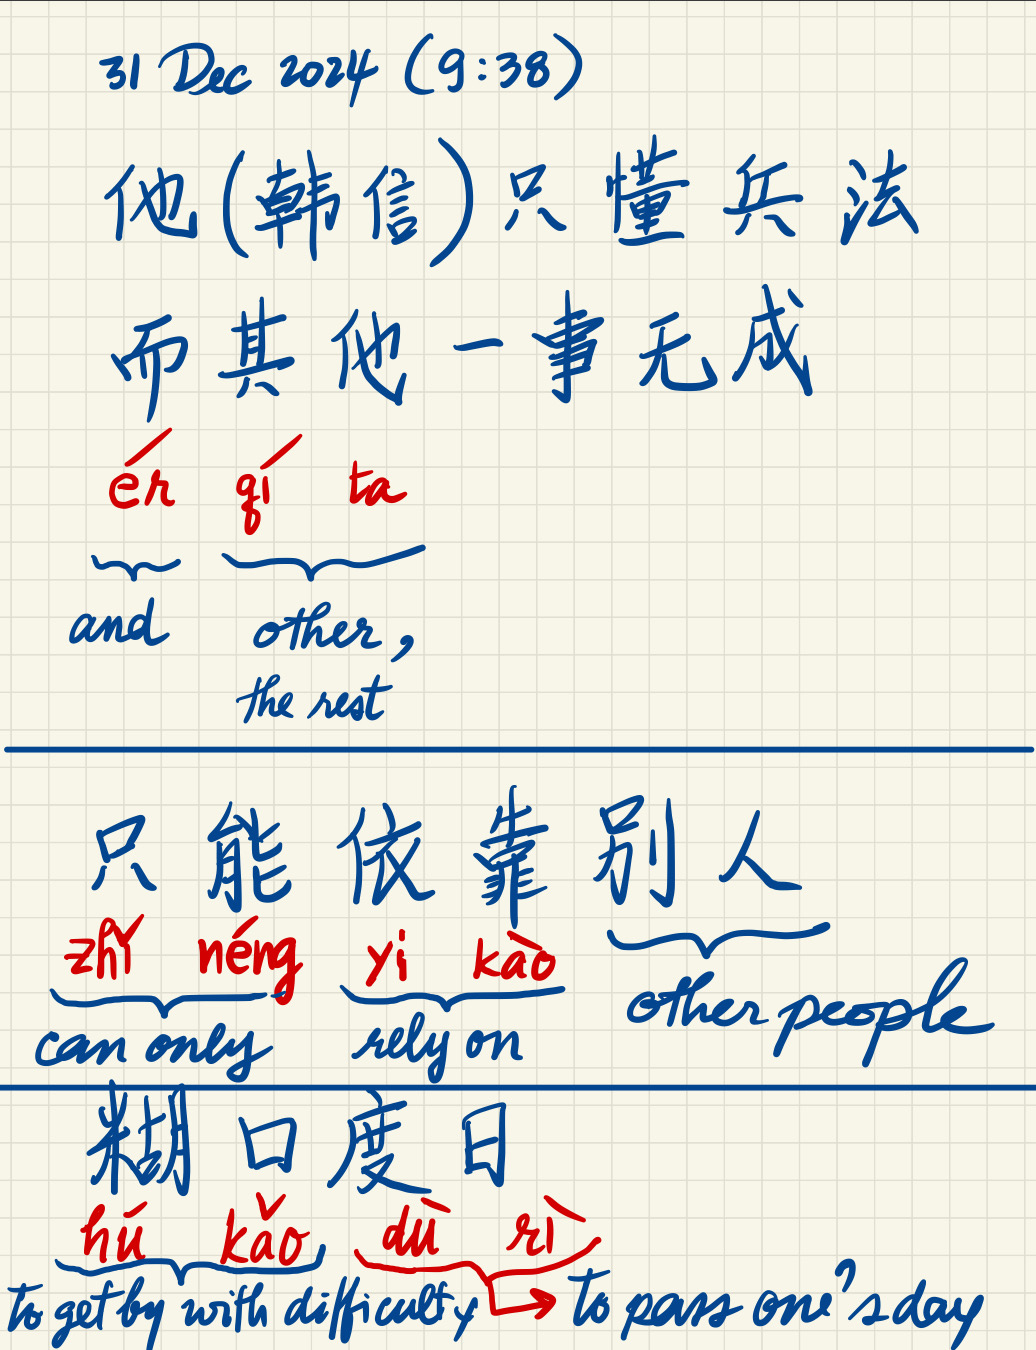 31 Dec 2024 (9:38)
他(韩信)只懂兵法
而其他一事无成
ér qí ta
and other,
the rest
只能依靠别人
zhǐ néng yi kào
can only rely on other people
糊口度日
hú kǎo dù rì
to get by with difficulty → to pass one's day